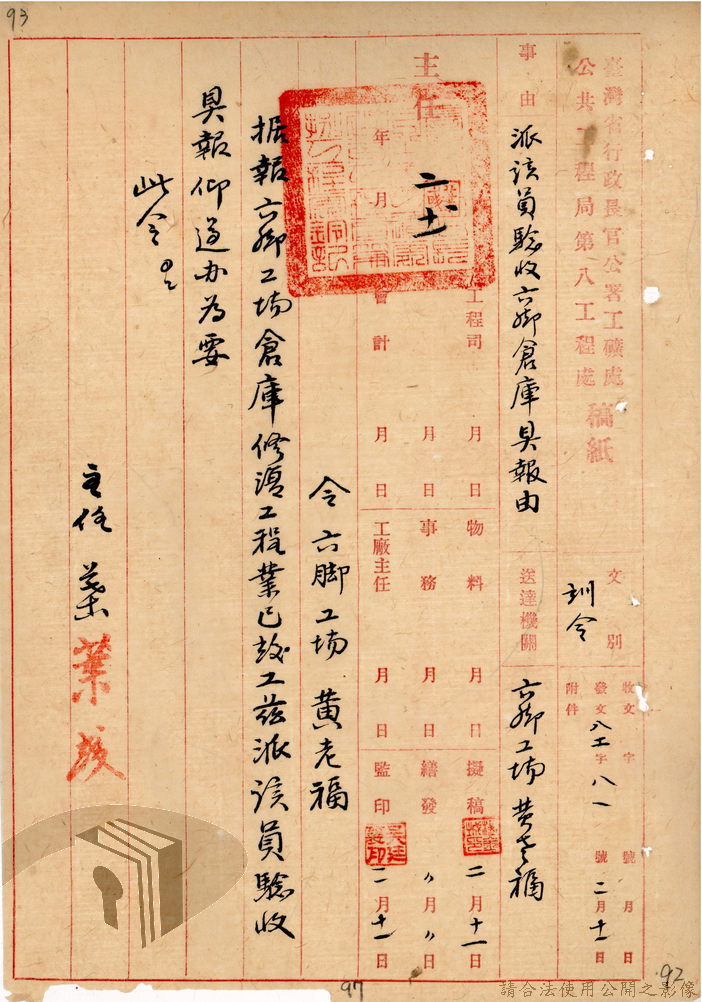 93
臺灣省行政長官公署工礦處
公共工程局第八工程處 稿紙
文別 訓令
收文 字 號 月 日
發文 八工字 八一 號 二月十一日
附件
事由 派該員驗收六腳倉庫具報由
送達機關 六腳工場 黃老福
主任
年 月
二 十一
工程司 月 日
物料 月 日
擬稿 二月十一日
月 日
事務 月 日
繕發 〃月〃日
會計 月 日
工廠主任 月 日
監印 二月十一日
令六腳工場 黃老福
据報六腳工場倉庫修理工程業已竣工茲派該員驗收
具報仰遵办為要
此令
主任 葉
97
92
請合法使用公開之影像